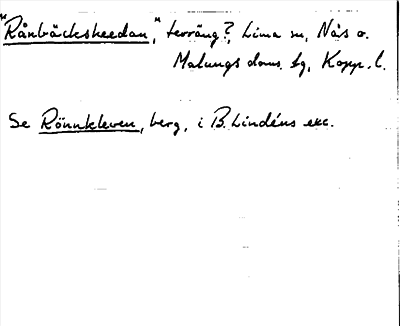 "Rånbäcksheedan," terräng?, Lima sn, Nås o.
Malungs doms. sg, Kopp. l.
Se Rönnkleven, berg, i B. Lindéns exc.